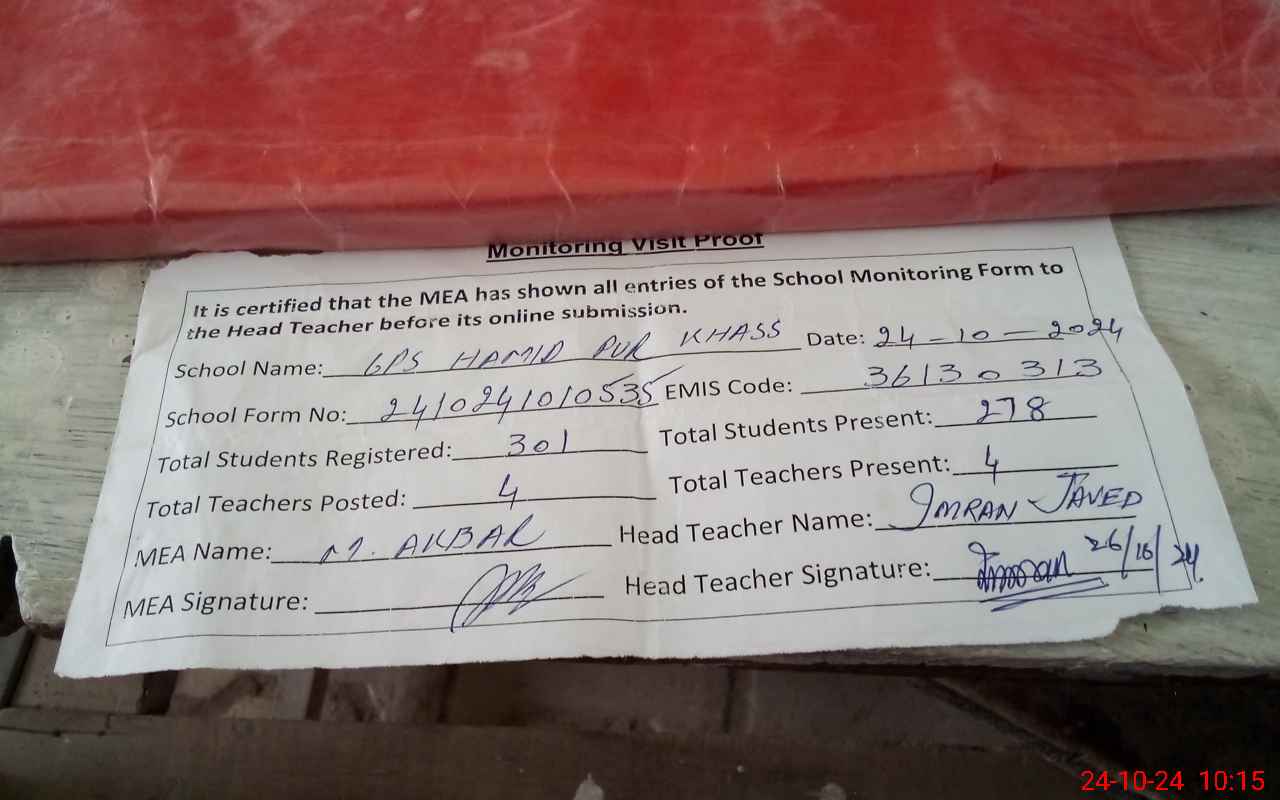 Monitoring Visit Proof
It is certified that the MEA has shown all entries of the School Monitoring Form to
the Head Teacher before its online submission.
School Name: GPS HAMID PUR KHASS Date: 24-10-2024
School Form No: 2410241010535 EMIS Code: 36130313
Total Students Registered: 301 Total Students Present: 278
Total Teachers Posted: 4 Total Teachers Present: 4
MEA Name: M. AKBAR Head Teacher Name: IMRAN JAVED
MEA Signature: Head Teacher Signature: Imran 26/10/24
24-10-24 10:15